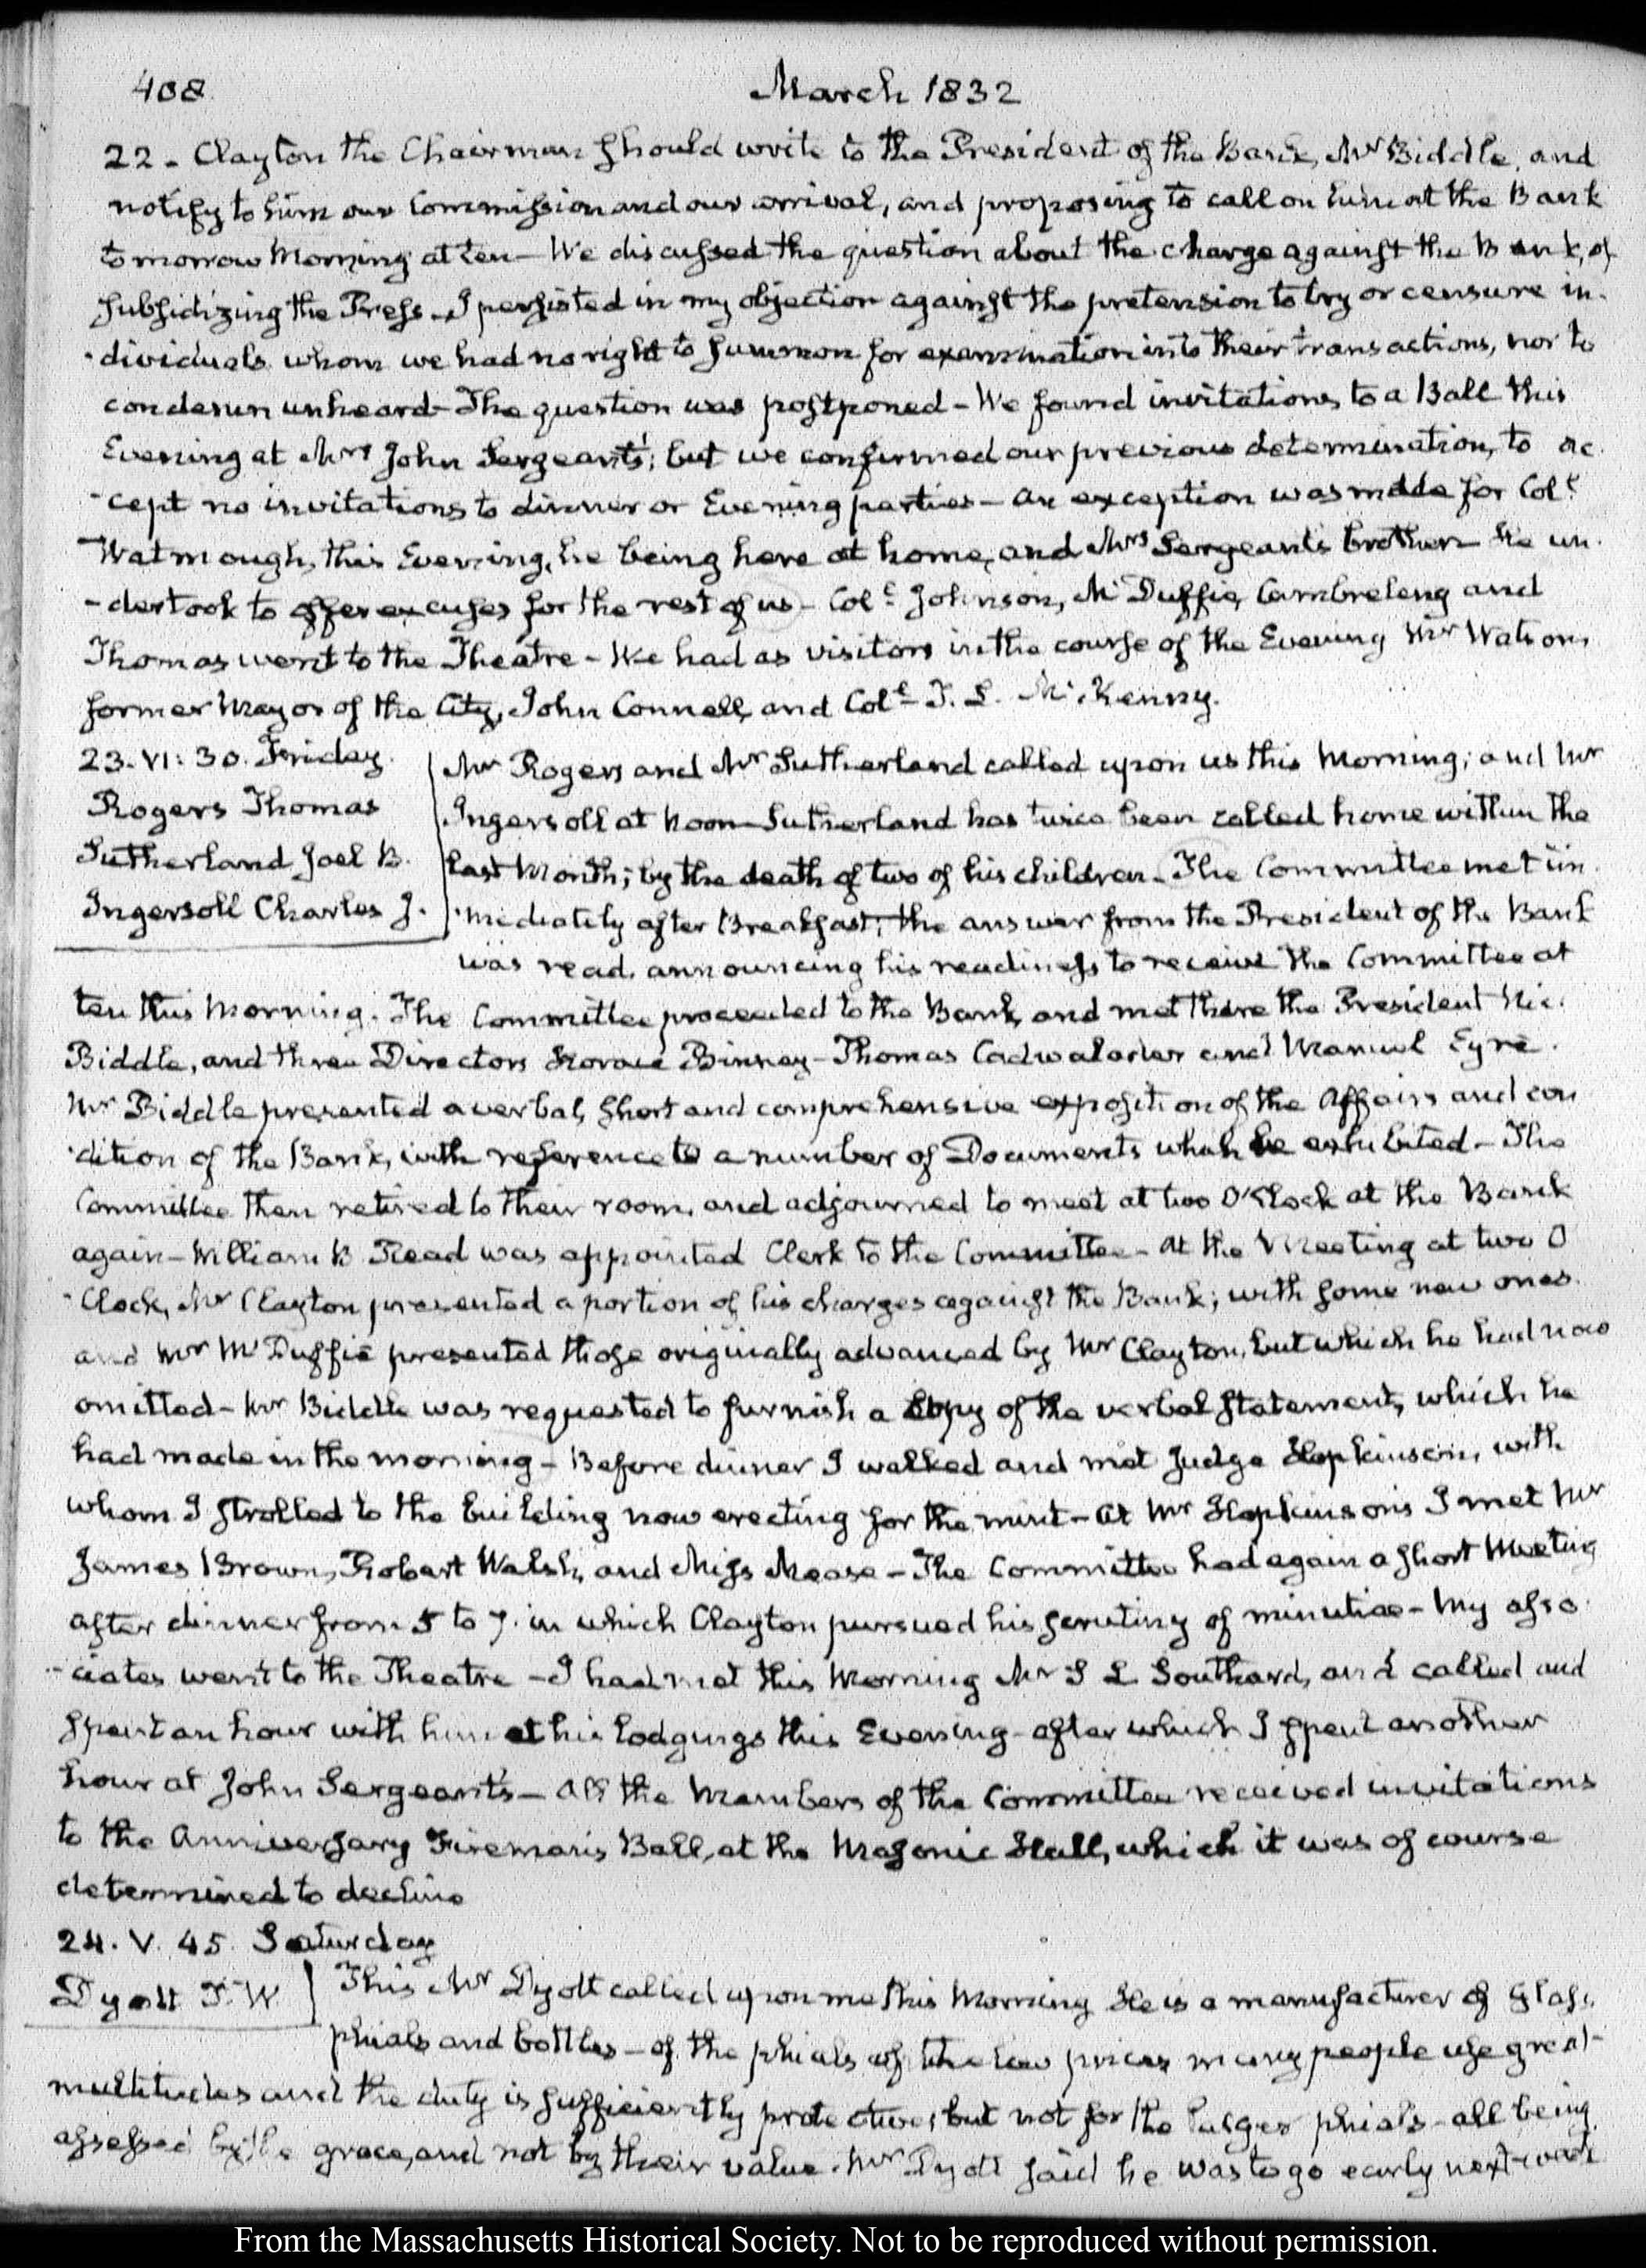 408
March 1832
22 - Clayton the Chairman should write to the President of the Bank, Mr Biddle, and
notify to him our Commission and our arrival, and proposing to call on him at the Bank
tomorrow Morning at ten - We discussed the question about the charge against the Bank, of
subsidizing the Press - I persisted in my objection against the pretension to try or censure in-
-dividuals whom we had no right to summon for examination into their transactions, nor to
condemn unheard - The question was postponed - We found invitations to a Ball this
Evening at Mrs John Sergeant's; but we confirmed our previous determination, to ac-
-cept no invitations to dinner or Evening parties - An exception was made for Coll
Watmough, this Evening, he being here at home, and Mrs Sergeant's brother - He un-
-dertook to offer excuses for the rest of us - Coll Johnson, Mc Duffie, Cambreleng and
Thomas went to the Theatre - We had as visitors in the course of the Evening Mr Watson,
former Mayor of the City, John Connell, and Coll T. L. Mc Kenny.
23. VI: 30. Friday.
Rogers Thomas
Sutherland Joel B.
Ingersoll Charles J.
Mr Rogers and Mr Sutherland called upon us this Morning; and Mr
Ingersoll at Noon - Sutherland has twice been called home within the
last Month; by the death of two of his children - The Committee met im-
-mediately after Breakfast; the answer from the President of the Bank
was read, announcing his readiness to receive the Committee at
ten this Morning. The Committee proceeded to the Bank, and met there the President Nic.
Biddle, and three Directors Horace Binney - Thomas Cadwalader and Manuel Eyre.
Mr Biddle presented a verbal, short and comprehensive exposition of the Affairs and con
-dition of the Bank, with reference to a number of Documents which he exhibited - The
Committee then retired to their room, and adjourned to meet at two O'Clock at the Bank
again - William B Read was appointed Clerk to the Committee - At the Meeting at two O
-Clock, Mr Clayton presented a portion of his charges against the Bank; with some new ones
and Mr Mc Duffie presented those originally advanced by Mr Clayton, but which he had now
omitted - Mr Biddle was requested to furnish a Copy of the verbal statement, which he
had made in the morning - Before dinner I walked and met Judge Hopkinson, with
whom I strolled to the building now erecting for the mint - At Mr Hopkinson's I met Mr
James Brown, Robert Walsh, and Miss Mease - The Committee had again a short Meeting
after dinner from 5 to 7. in which Clayton pursued his scrutiny of minutiae - My asso-
-ciates went to the Theatre - I had met this Morning Mr S L Southard, and called and
spent an hour with him at his lodgings this Evening - after which I spent another
hour at John Sergeant's - All the Members of the Committee received invitations
to the Anniversary Firemen's Ball, at the Masonic Hall, which it was of course
determined to decline
24. V. 45. Saturday
Dyott T. W
This Mr Dyott called upon me this Morning He is a manufacturer of Glass,
phials and bottles - of the phials of the low prices many people use great
multitudes and the duty is sufficiently protective, but not for the larger phials - all being
assessed by the groce, and not by their value. Mr Dyott said he was to go early next week
From the Massachusetts Historical Society. Not to be reproduced without permission.